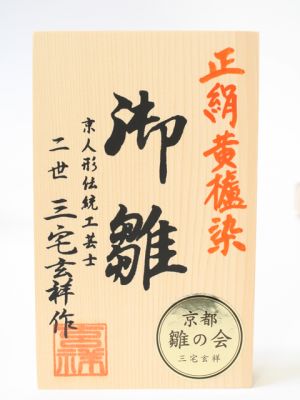 正絹黄櫨染
御雛
京人形伝統工芸士
二世 三宅玄祥作
玄祥
京都
雛の会
三宅玄祥